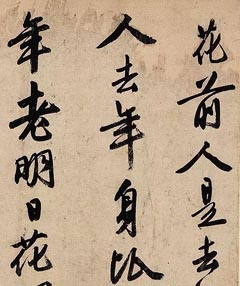 花前人是去
人去年身比
年老明日花